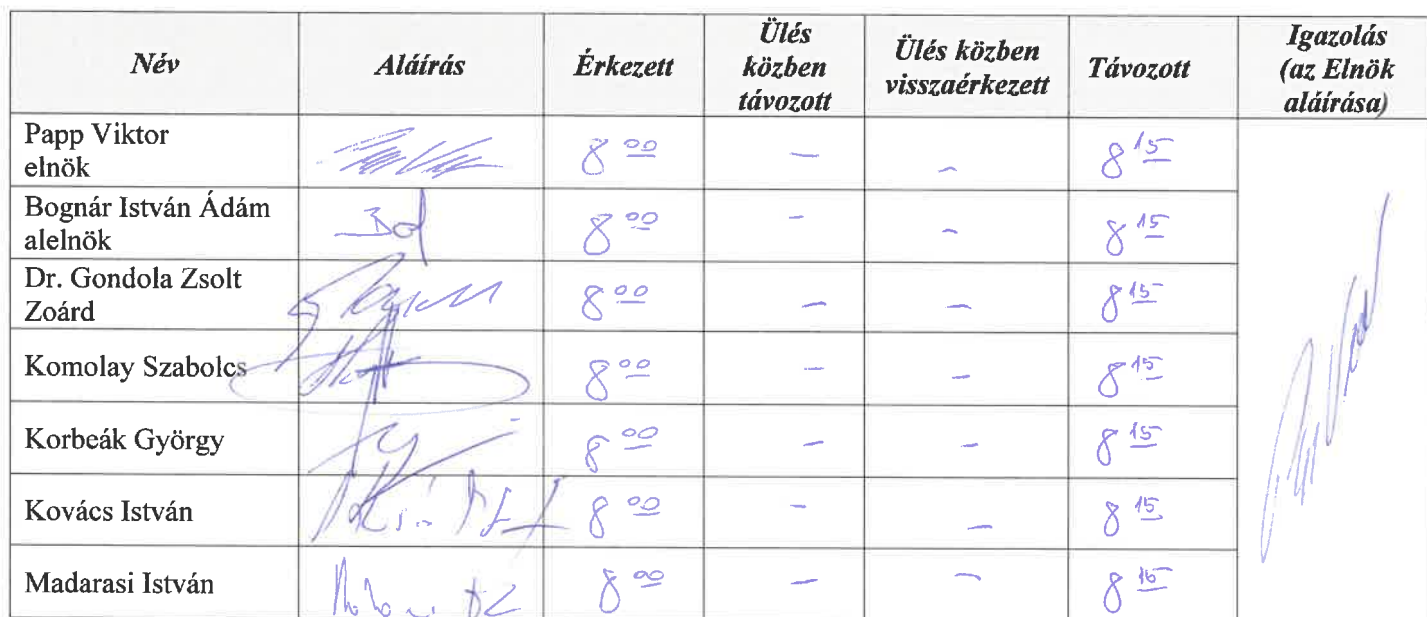 Név Aláírás Érkezett Ülés közben távozott Ülés közben visszaérkezett Távozott Igazolás (az Elnök aláírása)
Papp Viktor elnök 8 00 – – 8 15
Bognár István Ádám alelnök 8 00 – – 8 15
Dr. Gondola Zsolt Zoárd 8 00 – – 8 15
Komolay Szabolcs 8 00 – – 8 15
Korbeák György 8 00 – – 8 15
Kovács István 8 00 – – 8 15
Madarasi István 8 00 – – 8 15